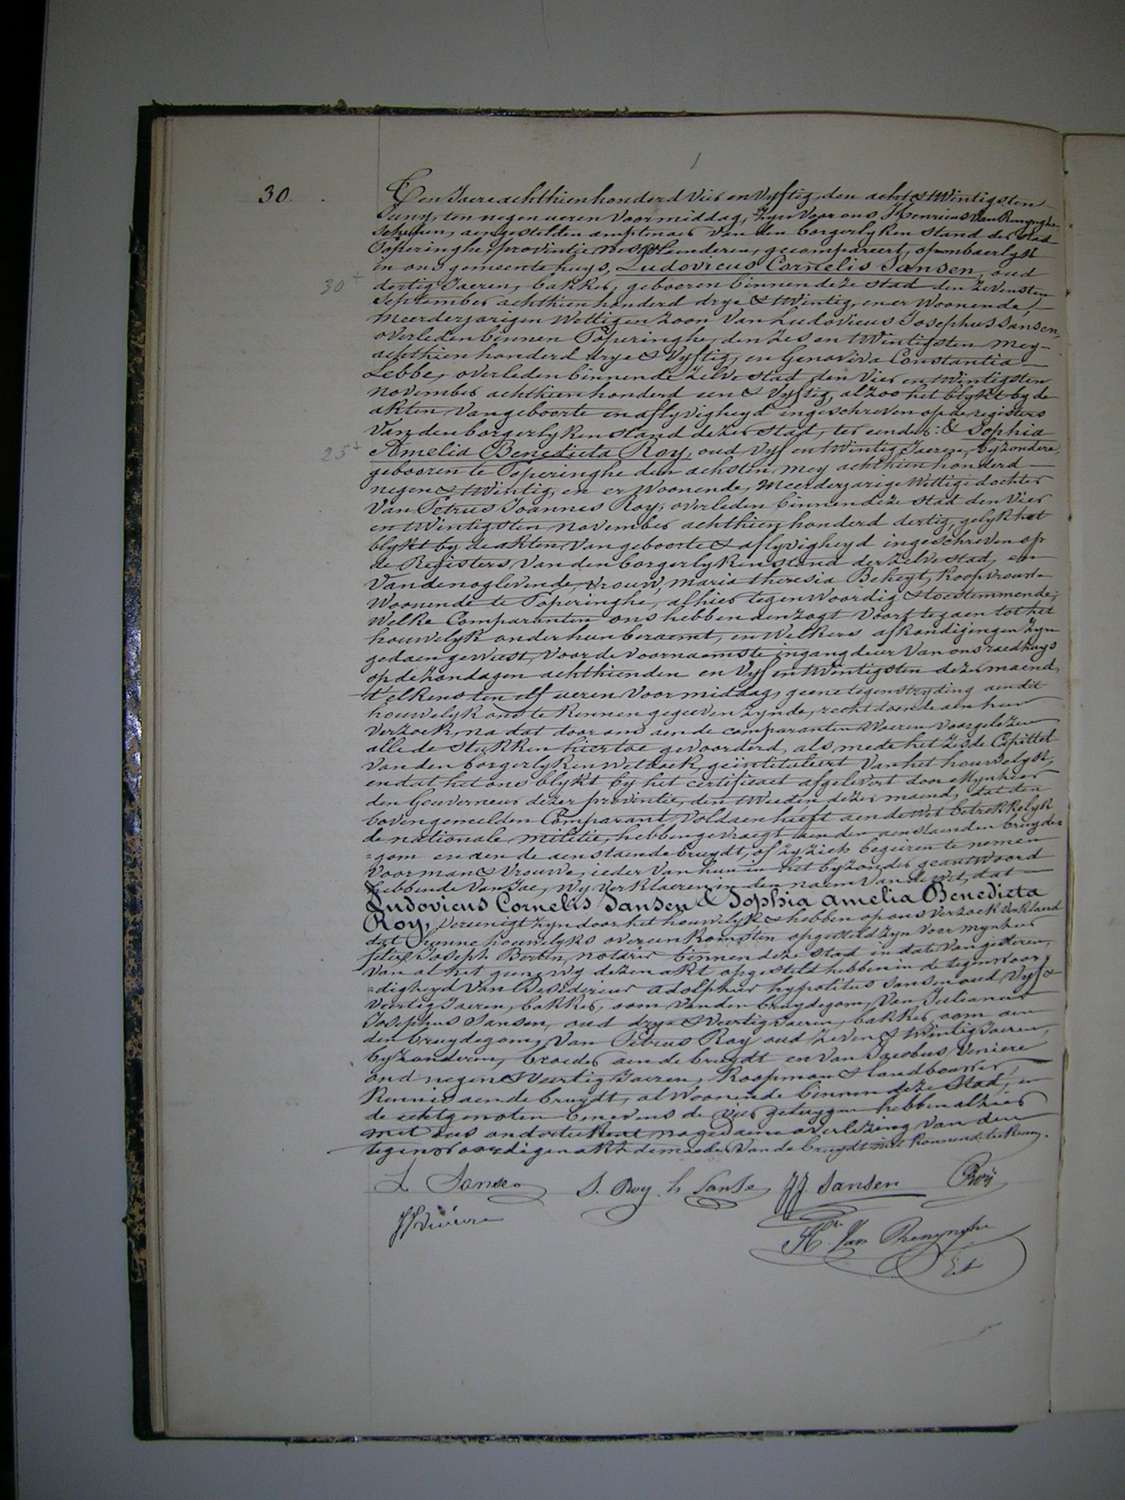 30.
Ten Jaere achthien honderd Vier en Vyftig, den acht & twintigsten
Juny, ten negen ueren voormiddag, Zyn voor ons Henricus Van Renynghe
Schepen, aengestelden amptenaer van den borgerlyken stand der stad
Poperinghe, provintie West Vlaenderen, gecompareert, openbaerlyk
in ons gemeentehuys, Ludovicus Cornelis Jansen, oud
30+
dertig Jaeren, bakker, geboren binnen deze stad den zevensten
September achthien honderd drye & twintig, en er Woonende,
Meerderjarigen Wettigen Zoon van Ludovicus Josephus Jansen,
overleden binnen Poperinghe, den Zes en twintigsten Mey
achthien honderd drye & Vyftig, en Genoviva Constantia
Lebbe, overleden binnen de Zelve stad, den Vier en twintigsten
November achthien honderd een & Vyftig, alzoo het blykt by de
akten van geboorte en aflyvigheyd ingeschreven op de registers
van den borgerlyken stand dezer stad, ter eender: & Sophia
25+
Amelia Benedicta Roy, oud Vyf en twintig Jaeren, byzondere,
geboren te Poperinghe den achsten Mey achthien honderd
negen & twintig, en er Woonende, Meerderjarige Wettige dochter
van Petrus Joannes Roy, overleden binnen deze stad den Vier
en twintigsten November achthien honderd dertig, gelyk het
blykt by de akten van geboorte & aflyvigheyd ingeschreven op
de Registers van den borgerlyken stand der zelve stad, en
Van de noglevende, vrouw, Maria Theresia Beheyt, Koopvrouw
Woonende te Poperinghe, alhier tegenwoordig & toestemmende;
Welke Comparanten ons hebben aenzogt voorttegaen tot het
houwelyk onder hun beraemt, en welkers afkondigingen zyn
gedaen geweest, voor de voornaemste ingangdeur van ons raedhuys
op de zondagen achthienden en Vyf en twintigsten dezer maend,
t'elkens ten elf ueren voormiddag, geene tegenstryding aen dit
houwelyk ons te kennen gegeven zynde, recht doende aen hun
verzoek, na dat door ons aen de comparanten Waeren voorgelezen
alle de stukken hiertoe gevoorderd, als mede het Zesde Capittel
van den borgerlyken wetboek geïntituleert van het houwelyk,
en dat het ons blykt by het certificaet afgelevert door Mynheer
den Gouverneur dezer provintie, den tweeden dezer maend, dat den
bovengemelden Comparant, voldaen heeft aen de wet betrekkelyk
de nationale militie, hebben gevraegt aen den aenstaenden bruyde-
=gom en aen de aenstaende bruydt, of zy zich begeiren te nemen
voor man & vrouwe, ieder van hun in het byzonder geantwoord
hebbende van Jae, wy verklaeren in den naem van de wet, dat
Ludovicus Cornelis Jansen & Sophia Amelia Benedicta
Roy, Vereenigt zyn door het houwelyk & hebben op ons verzoek verklaerd
dat hunne houwelyks overeenkomsten opgesteld zyn voor Mynheer
felix Joseph Berten, notaris binnen deze stad in date van gisteren,
van al het gene wy dezen akt opgesteld hebben in de tegenwoor-
=digheyd van Desiderius Adolphus hypolitus Jansen oud Vyf &
veertig Jaeren, bakker, oom van den bruydegom, van Julianus
Josephus Jansen, oud drye & veertig Jaeren, bakker, oom aen
den bruydegom, van Petrus Roy oud zeven & twintig Jaeren,
byzonderen, broeder aen de bruydt en van Jacobus Veniere
oud negen & veertig Jaeren, Koopman & landbouwer,
Kennis aen de bruydt, al Woonende binnen deze stad, en
de echtgenoten benevens de vier getuygen hebben alhier
met ons onderteekent na gedaene overlezing van den
tegenwoordigen akt, de moeder van de bruydt niet konnende teekenen.
L Jansen S. Roy h Janse JJ Jansen P Roÿ
JVeniere
He Van Renynghe